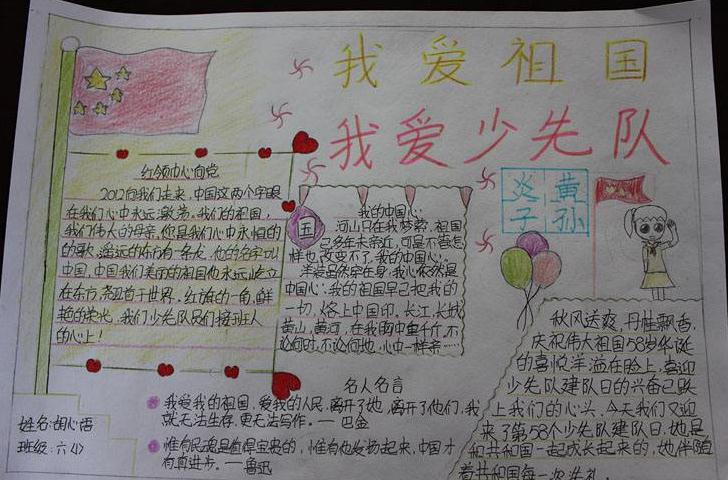 我爱祖国
我爱少先队
红领巾心向党
2012向我们走来,中国这两个字眼
在我们心中永远激荡。我们的祖国,
我们伟大的母亲,您是我们心中永恒的
的歌,遥远的东方有一条龙,他的名字叫
中国,中国我们美丽的祖国他永远屹立
在东方,挺立于世界。红旗的一角,鲜
艳的荣光,我们少先队员们接班人
的心上!
我的中国心:
国
河山只在我梦索,祖国
已多年未亲近,可是不管怎
样也改变不了,我的中国心。
洋装虽然穿在身,我心依然是
中国心,我的祖国早已把我的
一切,烙上中国印。长江,长城
黄山,黄河,在我胸中重千斤,不
论何时,不论何地,心中一样亲……
炎黄
子孙
秋风送爽,丹桂飘香,
庆祝伟大祖国58岁华诞
的喜悦洋溢在脸上,喜迎
少先队建队日的兴奋已跃
上我们的心头,今天我们又迎
来了第58个少先队建队日,她是
和共和国一起成长起来的,她伴随
着共和国每一次
名人名言
我爱我的祖国,爱我的人民,离开了她,离开了他们,我
就无法生存,更无法写作。——巴金
惟有民魂是值得宝贵的,惟有他发扬起来,中国才
有真进步。——鲁迅
姓名:胡心悟
班级:六(1)